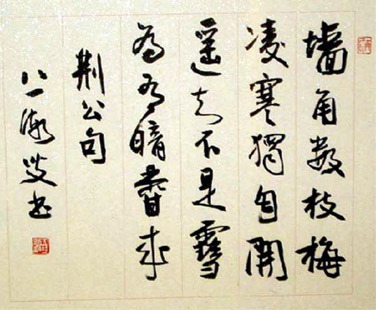 墙角数枝梅
凌寒独自開
遥知不是雪
为有暗香来
荆公句
八一叟书